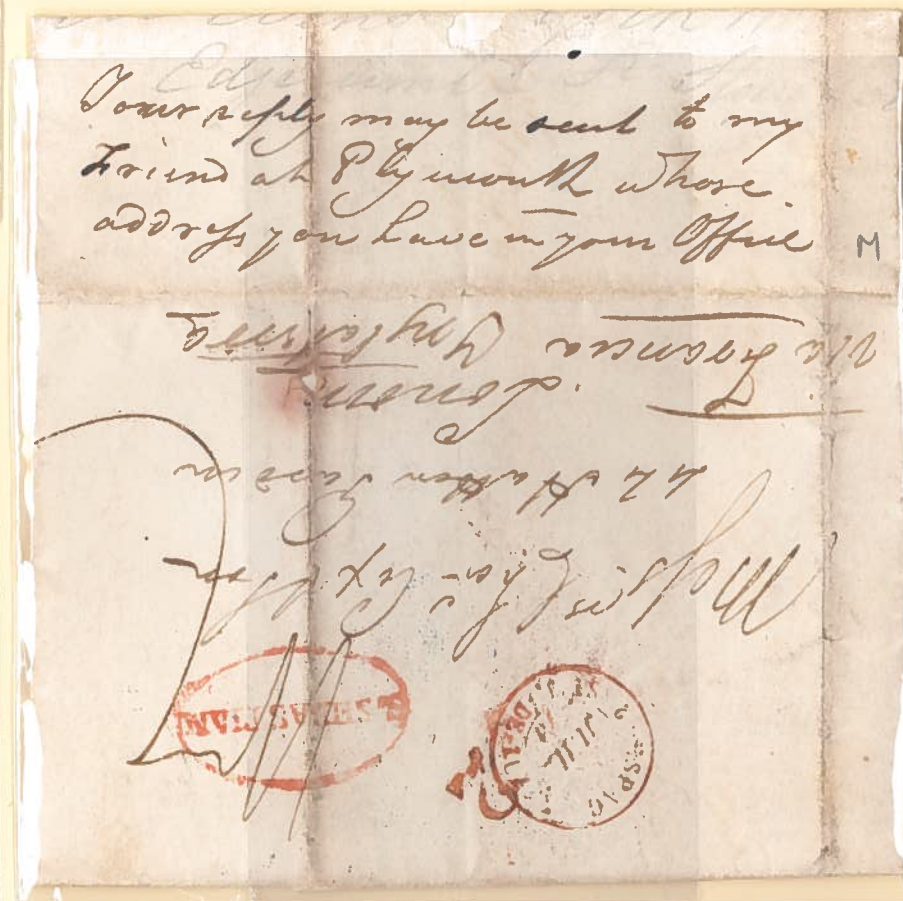 Your reply may be sent to my
Friend at Plymouth whose
address you have in your Office
M
Messrs Chas Cox & Son
42 Hatton Garden
London
Via Francia Ynglaterra
Sn SEBASTIAN